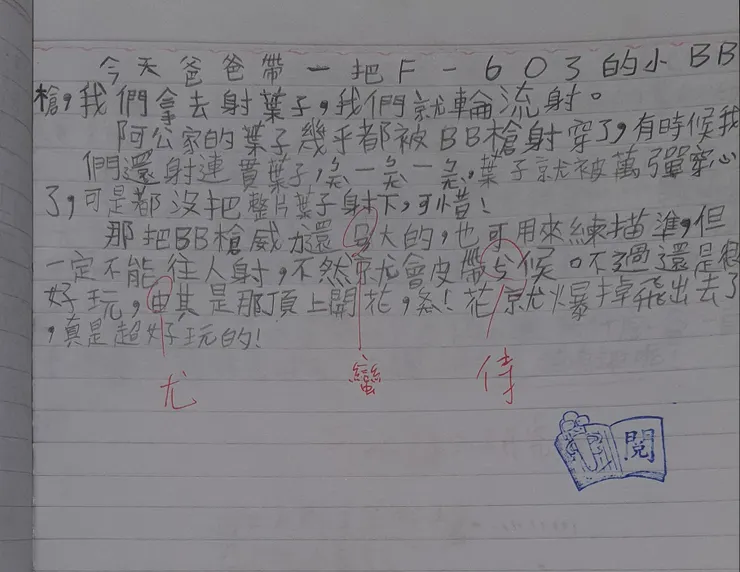 今天爸爸帶一把F-603的小BB
槍,我們拿去射葉子,我們就輪流射。
阿公家的葉子幾乎都被BB槍射穿了,有時候我
們還射連貫葉子,一一,葉子就被萬彈穿心
了,可是都沒把整片葉子射下,可惜!
那把BB槍威力還ㄇ大的,也可用來練描準,但
一定不能往人射,不然就會皮帶ㄕ候。不過還是很
好玩,由其是那頂上開花,!花就爆掉飛出去了
,真是超好玩的!
尤
蠻
侍
閱